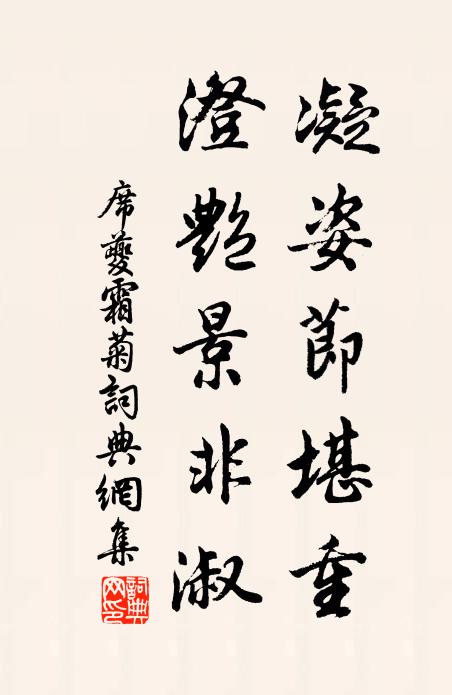 凝姿節堪重
澄艷景非淑
席夔霜菊詞典網集
詞典網印